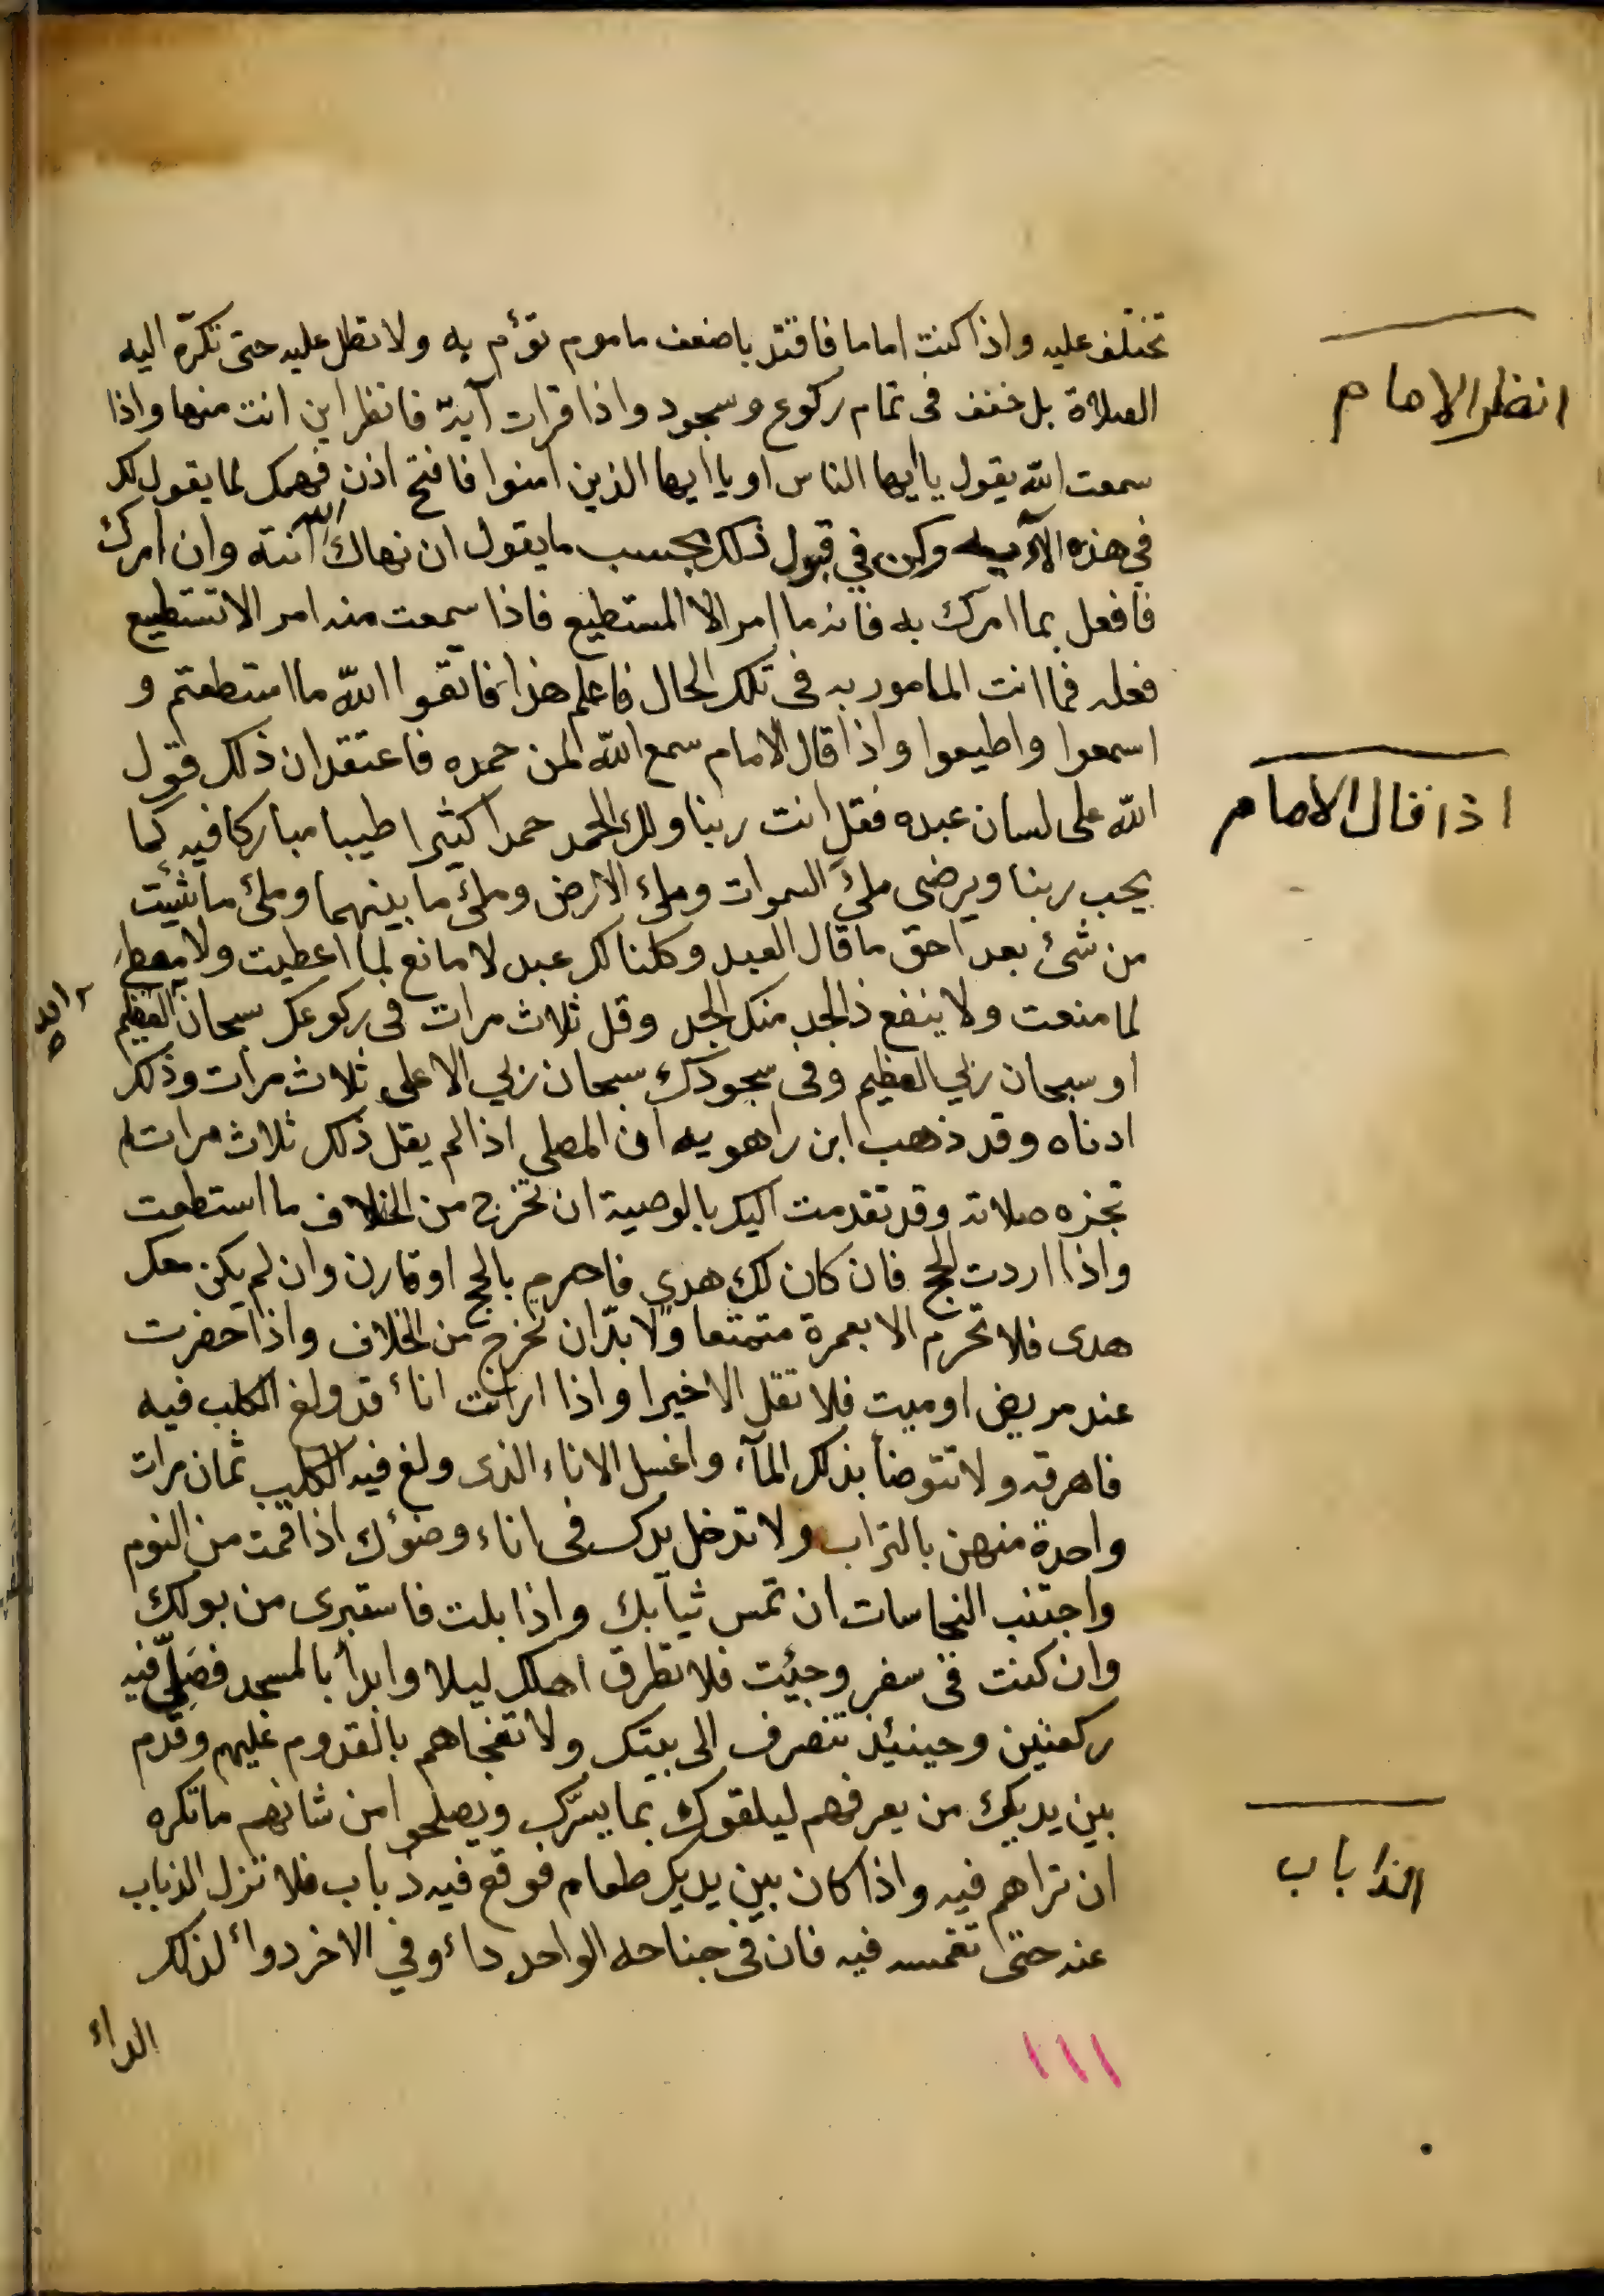 تختلف عليه واذا كنت اماما فاقتد باضعف ماموم تؤم به ولا تطل عليه حتى تكرّه اليه
انظر الامام
الصلاة بل خفف فى تمام ركوع وسجود واذا قرات آية فانظر اين انت منها واذا
سمعت الله يقول يا ايها الناس او يا ايها الذين امنوا فافتح اذن فهمك لما يقول لك
في هذه الآية وكن في قبول ذلك بحسب ما يقول ان نهاك الله انته وان امرك
فافعل بما امرك به فانه ما امر الا المستطيع فاذا سمعت منه امر الا تستطيع
فعله فما انت المامور به فى تلك الحال فاعلم هذا فاتقوا الله ما استطعتم و
اسمعوا واطيعوا واذا قال الامام سمع الله لمن حمده فاعتقد ان ذلك قول
اذا قال الامام
الله على لسان عبده فقل انت ربنا ولك الحمد حمدا كثيرا طيبا مباركا فيه كما
يحب ربنا ويرضى ملئ السموات وملئ الارض وملئ ما بينهما وملئ ما شئيت
من شئ بعد احق ما قال العبد وكلنا لك عبد لا مانع لما اعطيت ولا معطي
لما منعت ولا ينفع ذا الجد منك الجد وقل ثلاث مرات فى ركوعك سبحان العظيم
الله
او سبحان ربي العظيم وفى سجودك سبحان ربي الاعلى ثلاث مرات وذلك
ادناه وقد ذهب ابن راهويه ان المصلي اذا لم يقل ذلك ثلاث مرات لم
تجزه صلاته وقد تقدمت اليك بالوصية ان تخرج من الخلاف ما استطعت
واذا اردت الحج فان كان لك هدي فاحرم بالحج او قارن وان لم يكن معك
هدى فلا تحرم الا بعمرة متمتعا ولا بدّ ان تخرج من الخلاف واذا حضرت
عند مريض او ميت فلا تقل الا خيرا واذا ارائت انائ قد ولغ الكلب فيه
فاهرقه ولا تتوضأ بذلك المآء واغسل الاناء الذى ولغ فيه الكلب ثمان مرات
واحدة منهن بالتراب ولا تدخل يدك فى اناء وضوئك اذا قمت من النوم
واجتنب النجاسات ان تمس ثيابك واذا بلت فاستبرى من بولك
وان كنت فى سفر وجئيت فلا تطرق اهلك ليلا وابدأ بالمسجد فصلّي فيه
ركعتين وحينئيذ تنصرف الى بيتك ولا تفجاهم بالقدوم عليهم وقدم
بين يديك من يعرفهم ليلقوك بما يسرّك ويصلحوا من شانهم ما تكره
ان تراهم فيه واذا كان بين يديك طعام فوقع فيه ذباب فلا تزل الذباب
الذباب
عنه حتى تغمسه فيه فان فى جناحه الواحد دائ وفي الاخر دوائ لذلك
الدائ
١١١